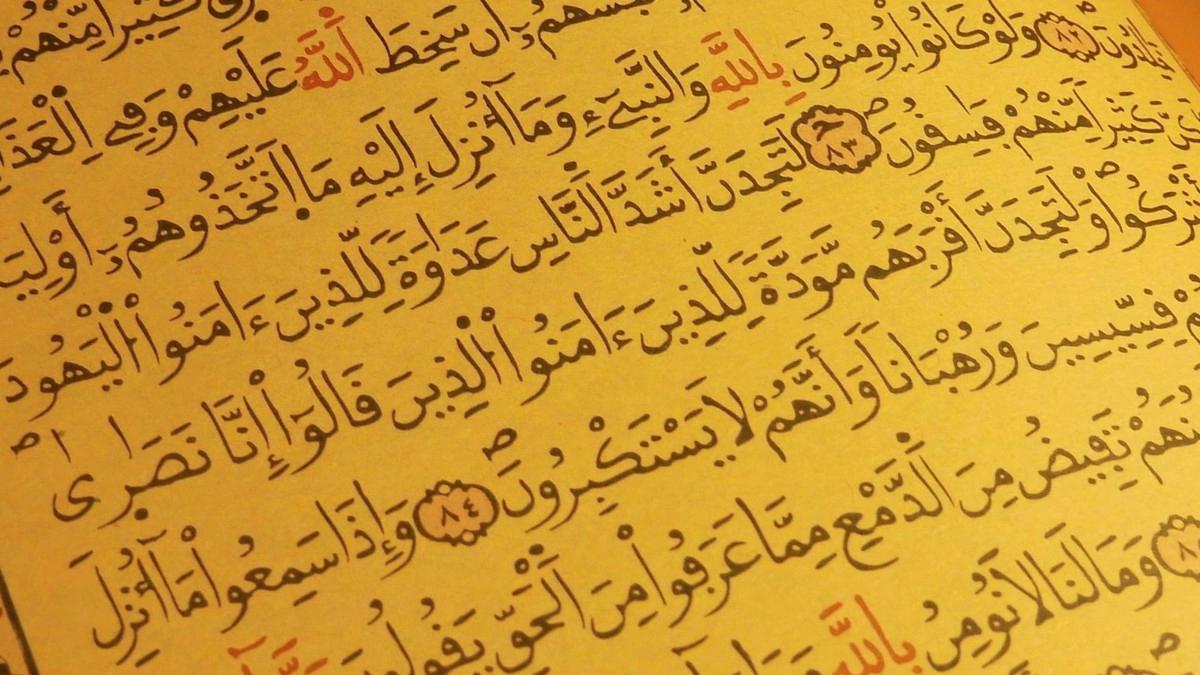 كَثِيراً مِّنْهُمْ
أَن سَخِطَ اَللَّهُ عَلَيْهِمْ وَفِي اِلْعَذَا
خَٰلِدُونَ ٨٢ وَلَوْ كَانُوا يُومِنُونَ بِاللَّهِ وَالنَّبِيءِ وَمَا أُنزِلَ إِلَيْهِ مَا اَتَّخَذُوهُمُ أَوْلِيَ
كَثِيراً مِّنْهُمْ فَٰسِقُونَ ٨٣ لَتَجِدَنَّ أَشَدَّ اَلنَّاسِ عَدَٰوَةً لِّلَّذِينَ ءَامَنُوا اُلْيَهُودَ
أَشْرَكُوا وَلَتَجِدَنَّ أَقْرَبَهُم مَّوَدَّةً لِّلَّذِينَ ءَامَنُوا اُلَّذِينَ قَالُوا إِنَّا نَصَٰرَىٰ
قِسِّيسِينَ وَرُهْبَاناً وَأَنَّهُمْ لَا يَسْتَكْبِرُونَ ٨٤ وَإِذَا سَمِعُوا مَا أُنزِلَ
تَفِيضُ مِنَ اَلدَّمْعِ مِمَّا عَرَفُوا مِنَ اَلْحَقِّ يَقُولُونَ
وَمَا لَنَا لَا نُومِنُ بِاللَّهِ